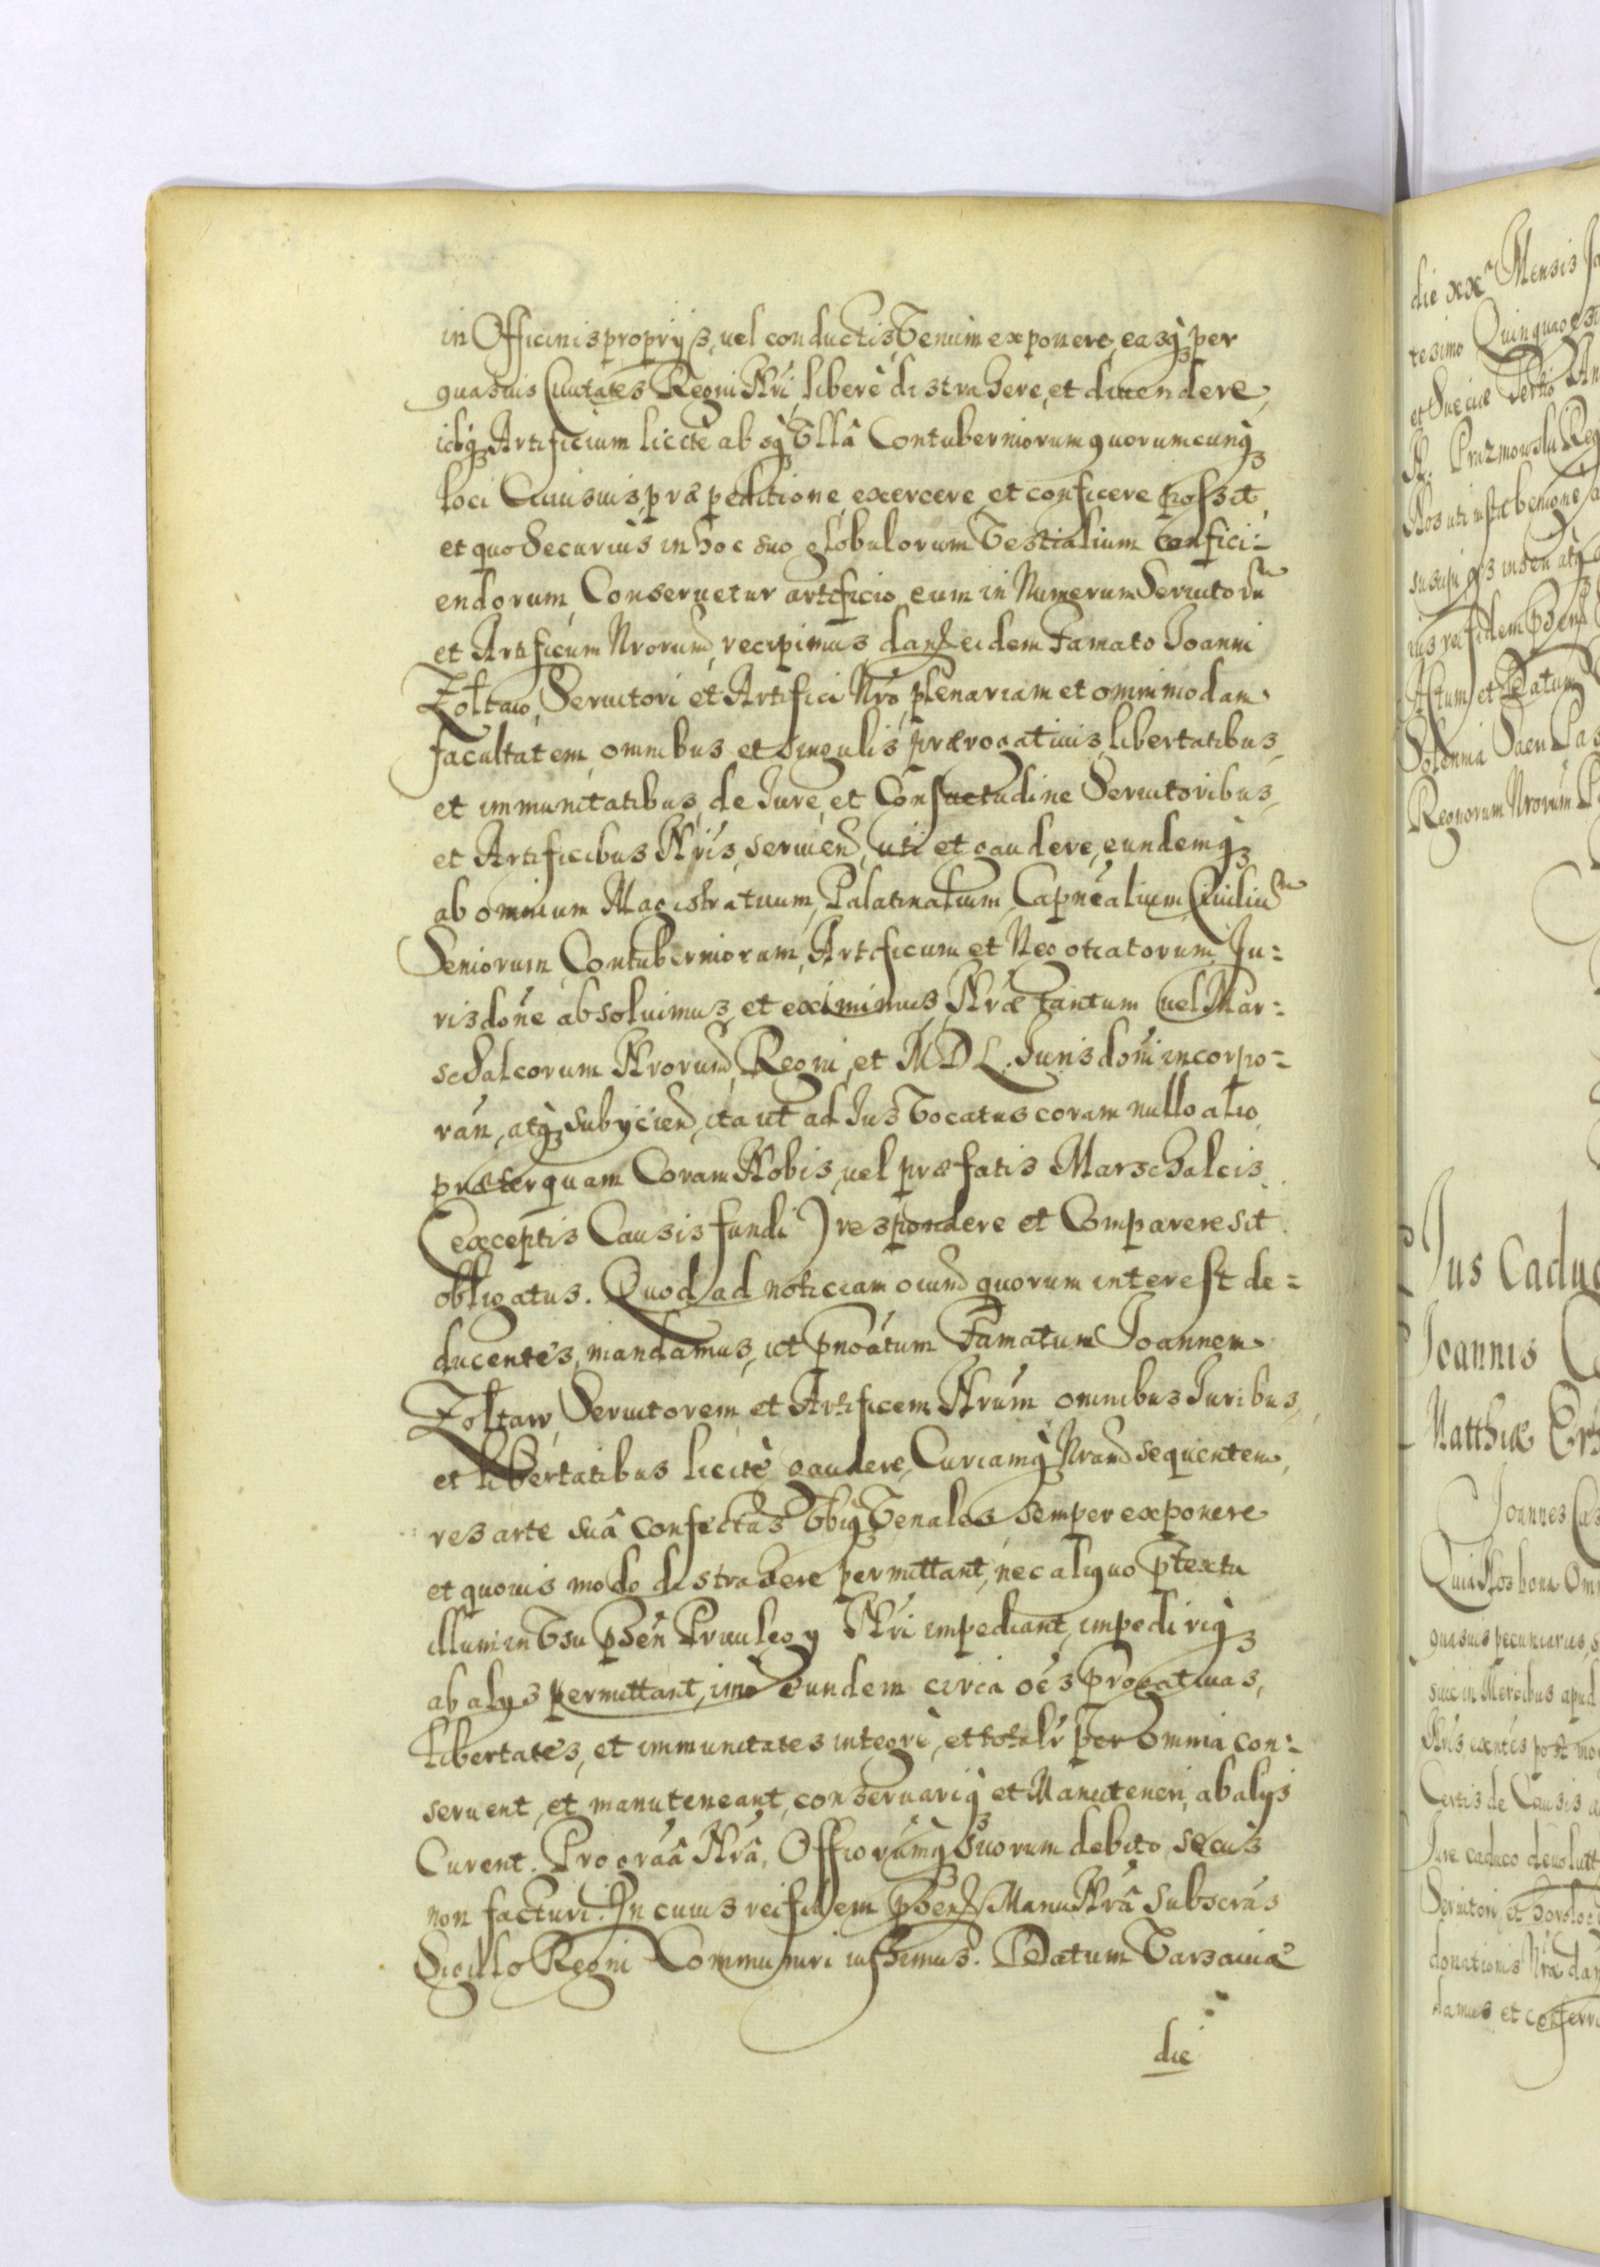 in Officinis proprijs, uel conductis, Venùm exponere, easq́ per
quasuis Ciuitates Regni Nri, liberè distrahere, et diuendere,
idq́ Artificium licitè absq́ Vllâ Contuberniorum quorumcunq́
loci Ciuisuis, præpeditione, exercere, et conficere possit,
et quo Securius in hoc suo globulorum Vestialium confici:
endorum, Conseruetur artificio, eum in Numerum Seruitorũ
et Artificum Nrorum, recipimus, dan̄ eidem Famato Joanni
Zołtaw, Seruitori et Artifici Nro, plenariam et omnimodam
facultatem, omnibus et Singulis prærogatiuis, libertatibus,
et immunitatibus, de Iure, et Consuetudine Seruitoribus,
et Artificibus Nris, seruien, uti et gaudere, eundemq́
ab omnium Magistratuum, Palatinalium, Capnealium, Ciuiliũ
Seniorum, Contuberniorum, Artificum et Negotiatorum, Ju:
risdone absoluimus, et eximimus, Nræ tantum uel Mar:
schalcorum Nrorum, Regni, et MDL. Jurisdoni incorpo:
ran, atq́ subijcien, ita ut ad Jus Vocatus coram nullo alio,
præterquam Coram Nobis, uel præfatis Marschalcis
(exceptis Causis fundi) respondere et Comparere sit
obligatus. Quod ad noticiam oium quorum interest de:
ducentes, mandamus, ut pnoatum Famatum Joannem
Zołtaw, Seruitorem, et Artificem Nrum omnibus Juribus,
et libertatibus licitè gaudere, Curiamq́ Nram sequentem,
res arte suâ confectas Vbiq́ Venales semper exponere
et quouis modo distrahere permittant, nec aliquo ptextu
illum in Vsu psen Priuilegij Nri impediant, impediriq́
ab alijs permittant, imo eundem circa oes progatiuas,
libertates, et immunitates integrè, et totalr per omnia con:
seruent, et manuteneant, conseruariq́ et Manuteneri, ab alijs
Curent. Pro graâ Nrâ, Offiorumq́ suorum debito, secus
non facturi. In cuius rei fidem psen̄ Manu Nrâ Subscrus
Sigillo Regni Communiri iussimus. Datum Varsauiæ
die
die xxa Mensis Ja
tesimo Quinquages
et Sueciæ Vero An
N. Prazmowski Reg
Actum et Datum
Regnorum Nrorum P
Jus Caduc
Joannis C
Matthiæ
Joannes Cas
Quia Nos bona Om
quasuis pecuniarias, s
siue in Mercibus apud
Certis de Causis a
Jure caduco deuolut
donationis Nræ dan
damus et conferri